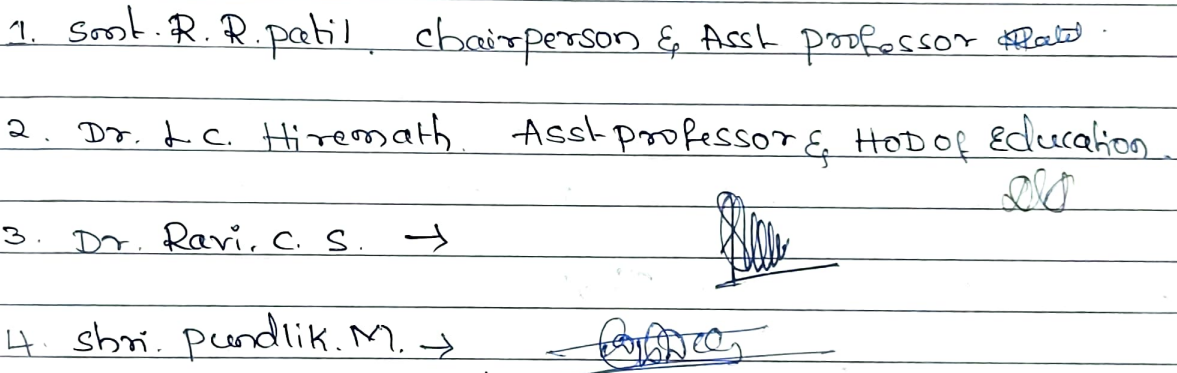 1. Smt. R. R. patil. chairperson & Asst professor
2. Dr. L C. Hiremath. Asst professor & HOD of Education.
3. Dr. Ravi. C. S. →
4. Shri. Pundlik. M. →